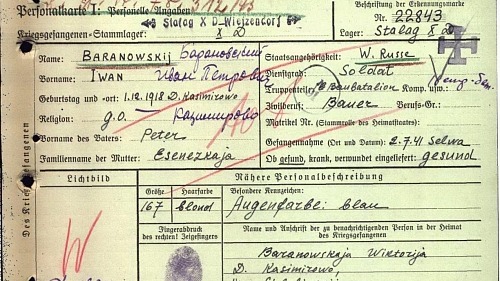 Personalkarte I: Personelle Angaben
Beschriftung der Erkennungsmarke
Stalag X D Wietzendorf
Nr. 22843
Kriegsgefangenen-Stammlager: X D
Lager: Stalag X D
Name: BARANOWSKIJ Барановский
Staatsangehörigkeit: W. Russe
Vorname: IWAN Иван Петрович
Dienstgrad: Soldat
Truppenteil: Baubatalion Komp. usw.:
Geburtstag und -ort: 1.12.1918 D. Kasimirowo
Zivilberuf: Bauer Berufs-Gr.:
Religion: g.O.
Matrikel Nr. (Stammrolle des Heimatstaates):
Vorname des Vaters: Peter
Gefangennahme (Ort und Datum): 2.7.41 Selwa
Familienname der Mutter: Esenezkaja
Ob gesund, krank, verwundet eingeliefert: gesund
Des Kriegsgefangenen
Lichtbild
Nähere Personalbeschreibung
Größe
Haarfarbe
Besondere Kennzeichen:
167
blond
Augenfarbe: blau
Fingerabdruck
des rechten! Zeigefingers
Name und Anschrift der zu benachrichtigenden Person in der Heimat
des Kriegsgefangenen
Baranowskaja Wiktorija
D. Kasimirowo,